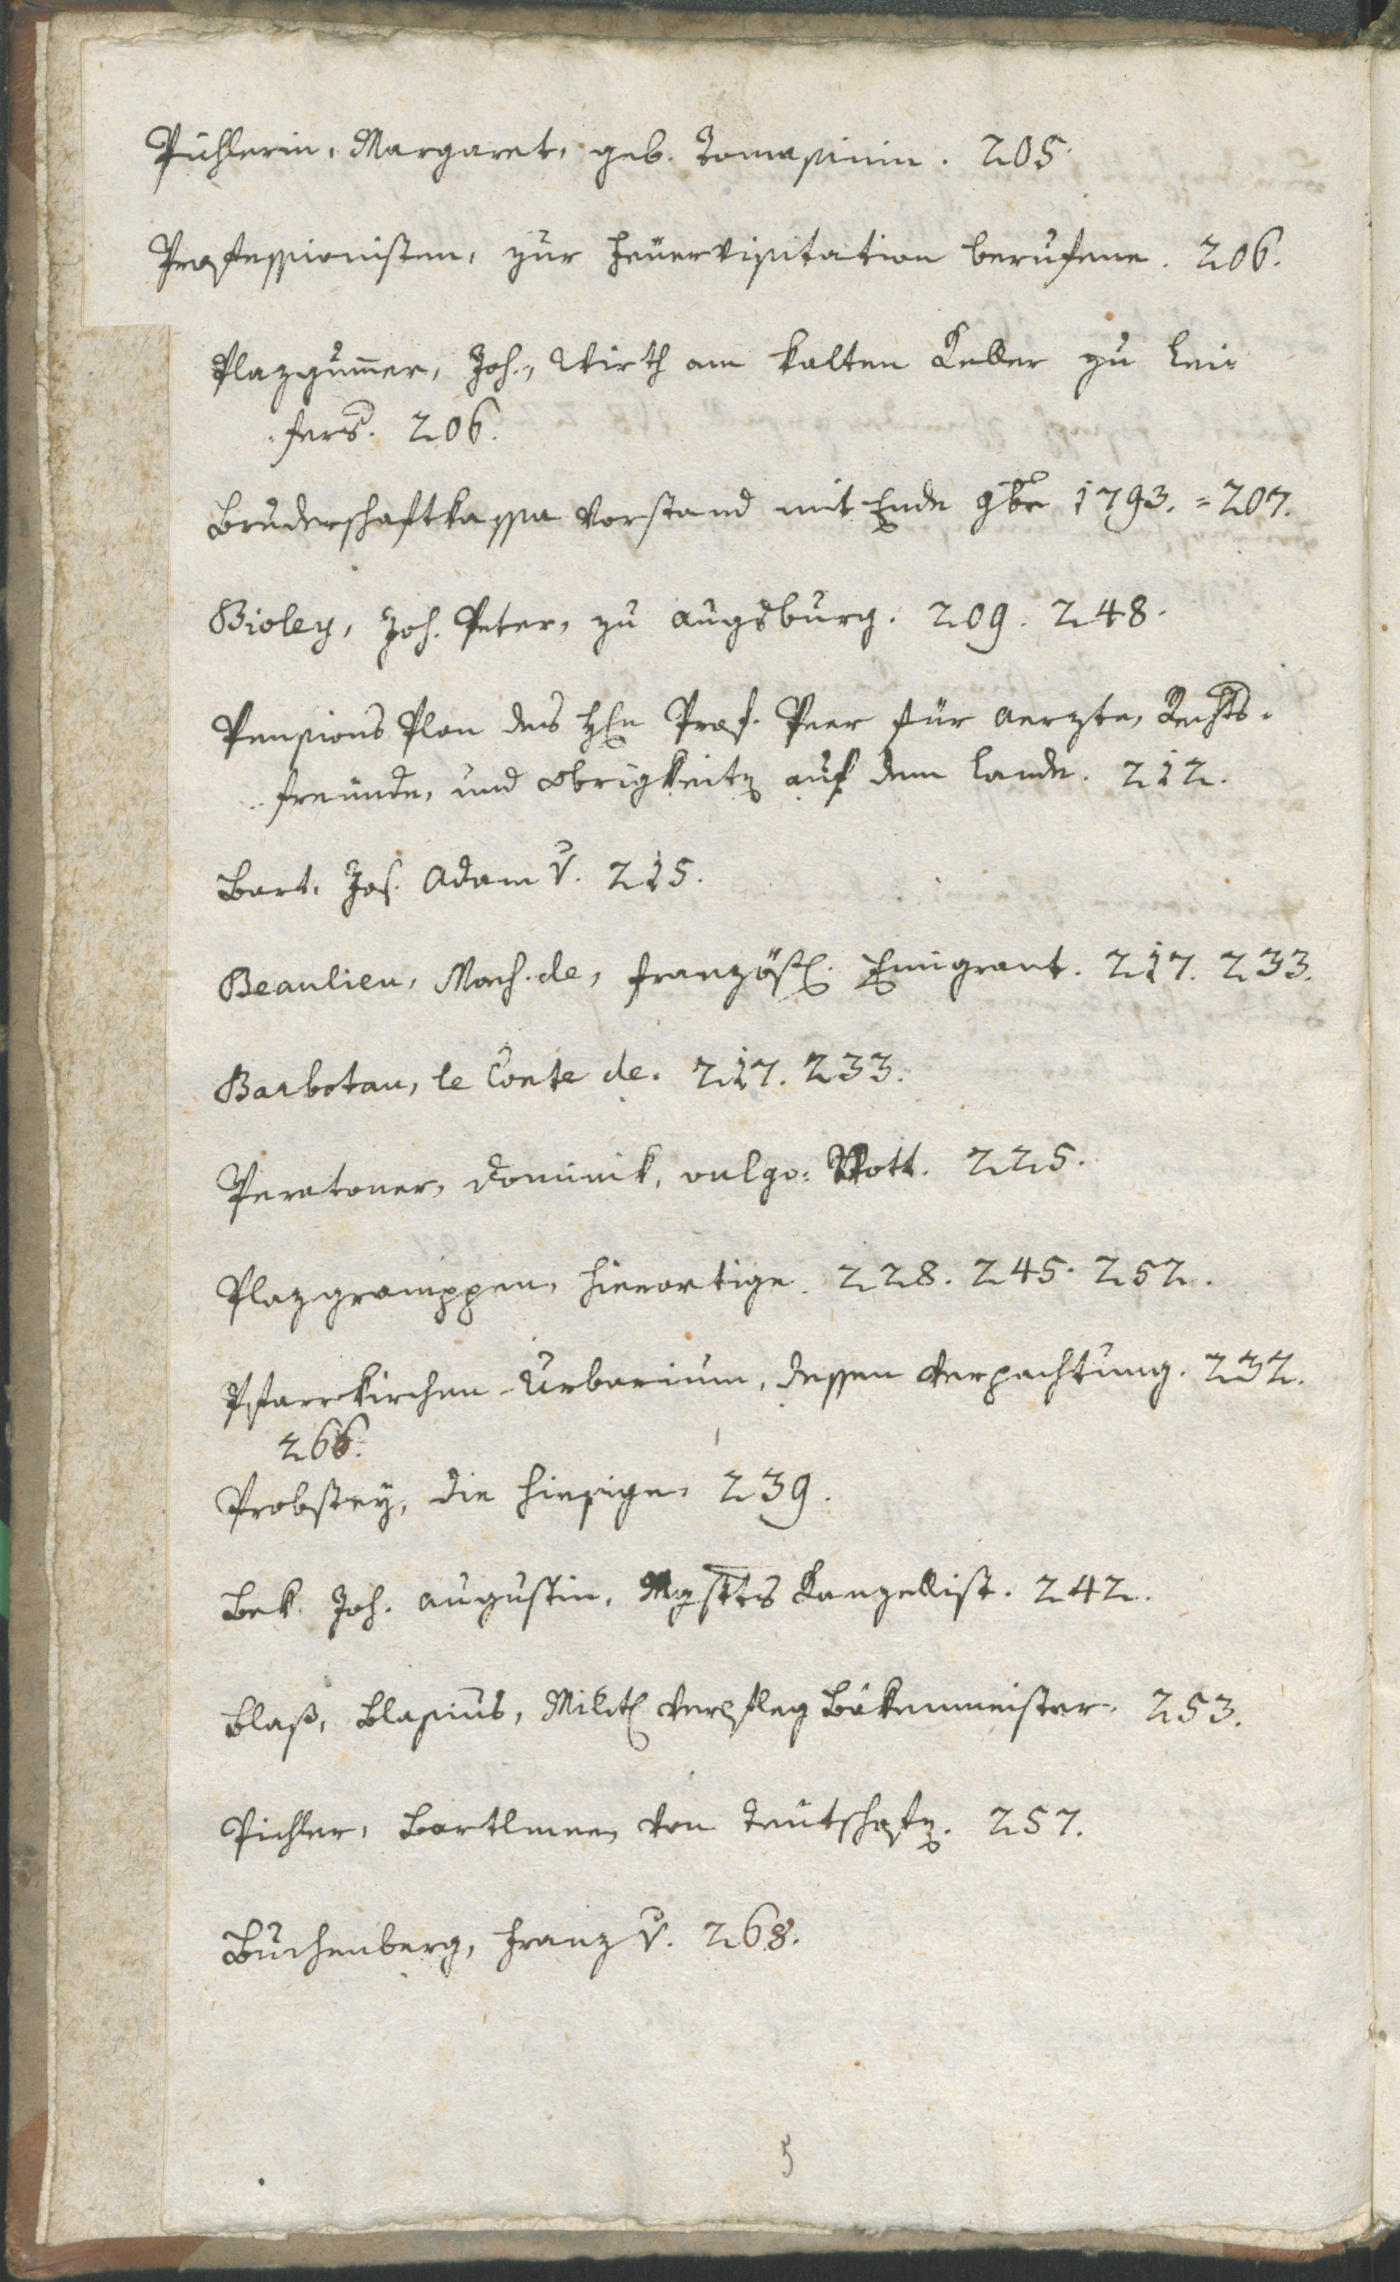 Pichlerin, Margaret, geb. Tomasinin. 205.
Professionisten, zur Feuervisitation berufene. 206.
Plazgumer, Joh., Wirth am kalten Keller zu Lei=
fers. 206.
Bruderschaftkassa Vorstand mit Ende 9br 1793. = 207.
Bioley, Joh. Peter, zu Augsburg. 209. 248.
Pensions Plan des Hn Prof. Peer für Aerzte, Rechts=
freunde, und Obrigkeiten auf dem Lande. 212.
Bart, Jos. Adam v. 215.
Beaulieu, Mach. de, französ. Emigrant. 217. 233.
Barbotau, le Conte de. 217. 233.
Peratoner, Dominik, vulgo: Nott. 225.
Plazgramppen, hierortige. 228. 245. 252.
Pfarrkirchen-Urbarium, dessen Verpachtung. 232.
266.
Probstey, die hiesige, 239.
Bek, Joh. Augustin, Mgstts Kanzellist. 242.
Blaß, Blasius, Milit Verpfleg Bäkenmeister, 253.
Pichler, Bartlmee, von Teutschofen. 257.
Buchenberg, Franz v. 268.
5